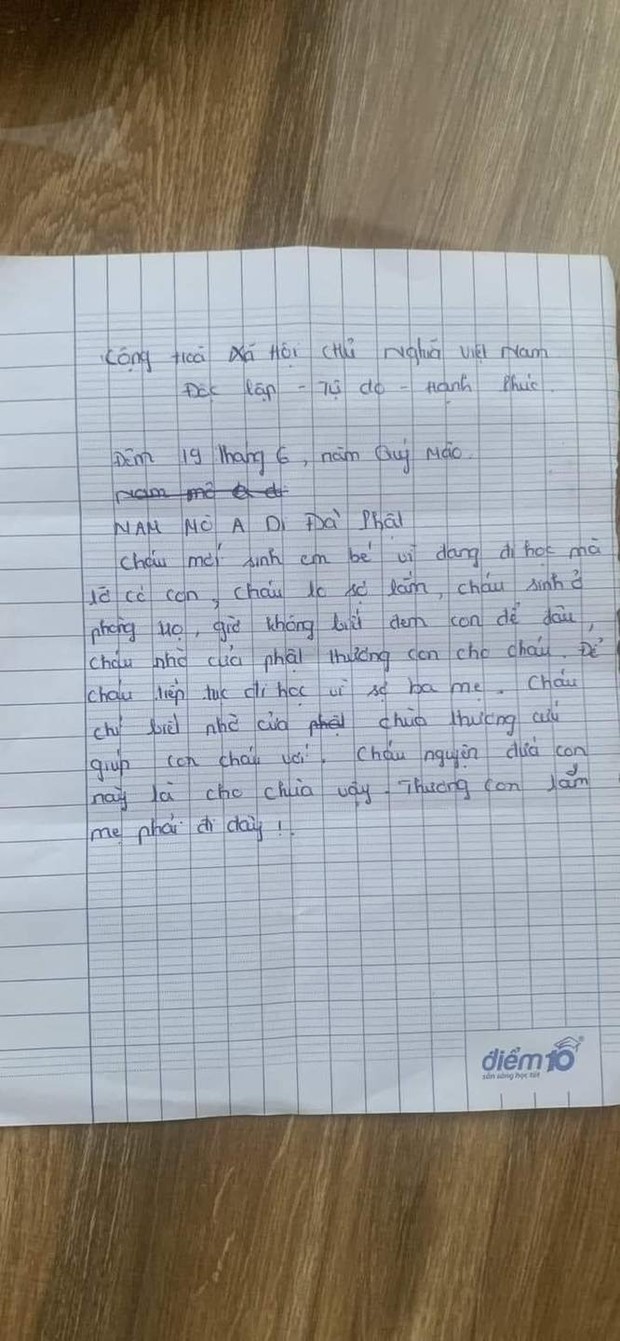 Cộng Hoà Xã Hội Chủ Nghĩa Việt Nam
Độc lập - Tự do - Hạnh Phúc.
Đêm 19 tháng 6, năm Quý Mão.
Nam mô a di
NAM MÔ A DI ĐÀ Phật
Cháu mới sinh em bé vì đang đi học mà
lỡ có con, cháu lo sợ lắm, cháu sinh ở
phòng trọ, giờ không biết đem con để đâu,
cháu nhờ cửa phật thương con cho cháu. Để
cháu tiếp tục đi học vì sợ ba mẹ. Cháu
chỉ biết nhờ cửa phật chùa thương cứu
giúp con cháu với. Cháu nguyện đứa con
này là cho chùa vậy. Thương con lắm
mẹ phải đi đây!.
điểm10
sẵn sàng học tốt